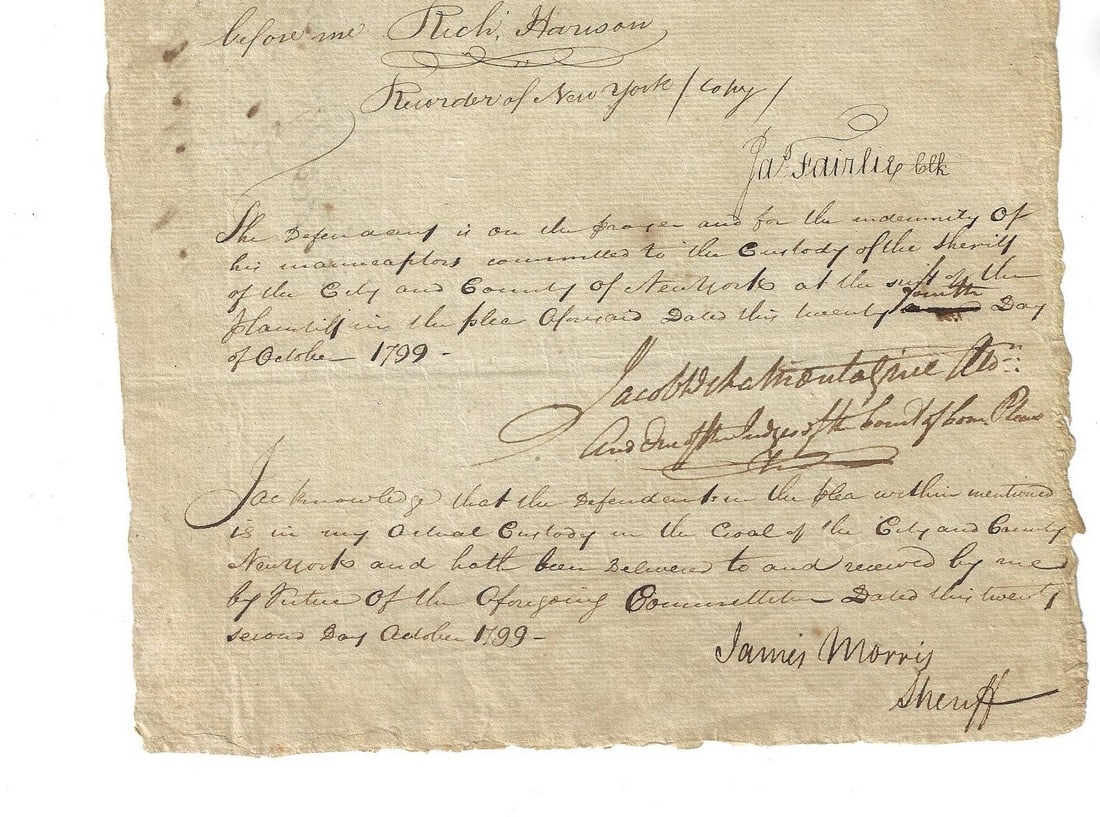 before me Rich. Harison
Recorder of New York / Copy /
Jas. Fairlie Clk
The Defendant is on the prayer and for the indemnity Of
his manucaptors committed to the Custody of the Sheriff
of the City and County of New York at the suit of the
Plaintiff in the plea Aforesaid Dated this twenty fourth Day
of October 1799 -
Jacob De La Montagnie
And One of the Judges of the Court of Com. Pleas
I acknowledge that the Defendent in the plea within mentioned
is in my Actual Custody in the Goal of the City and County
New York and hath been Delivered to and received by me
by Virtue Of the Aforegoing Committitur Dated this twenty
second Day October 1799 -
James Morris
Sheriff